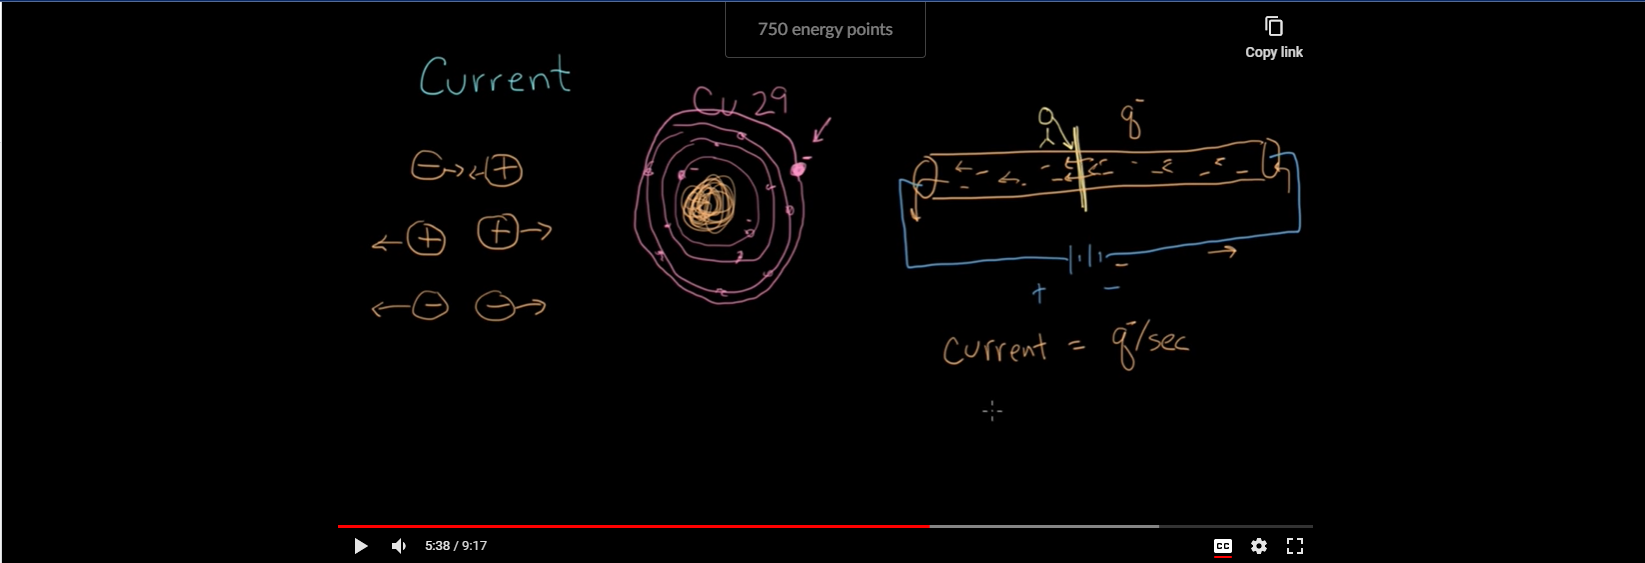 750 energy points
Copy link
Current
Cu 29
q⁻
+ −
current = q⁻/sec
5:38 / 9:17
CC